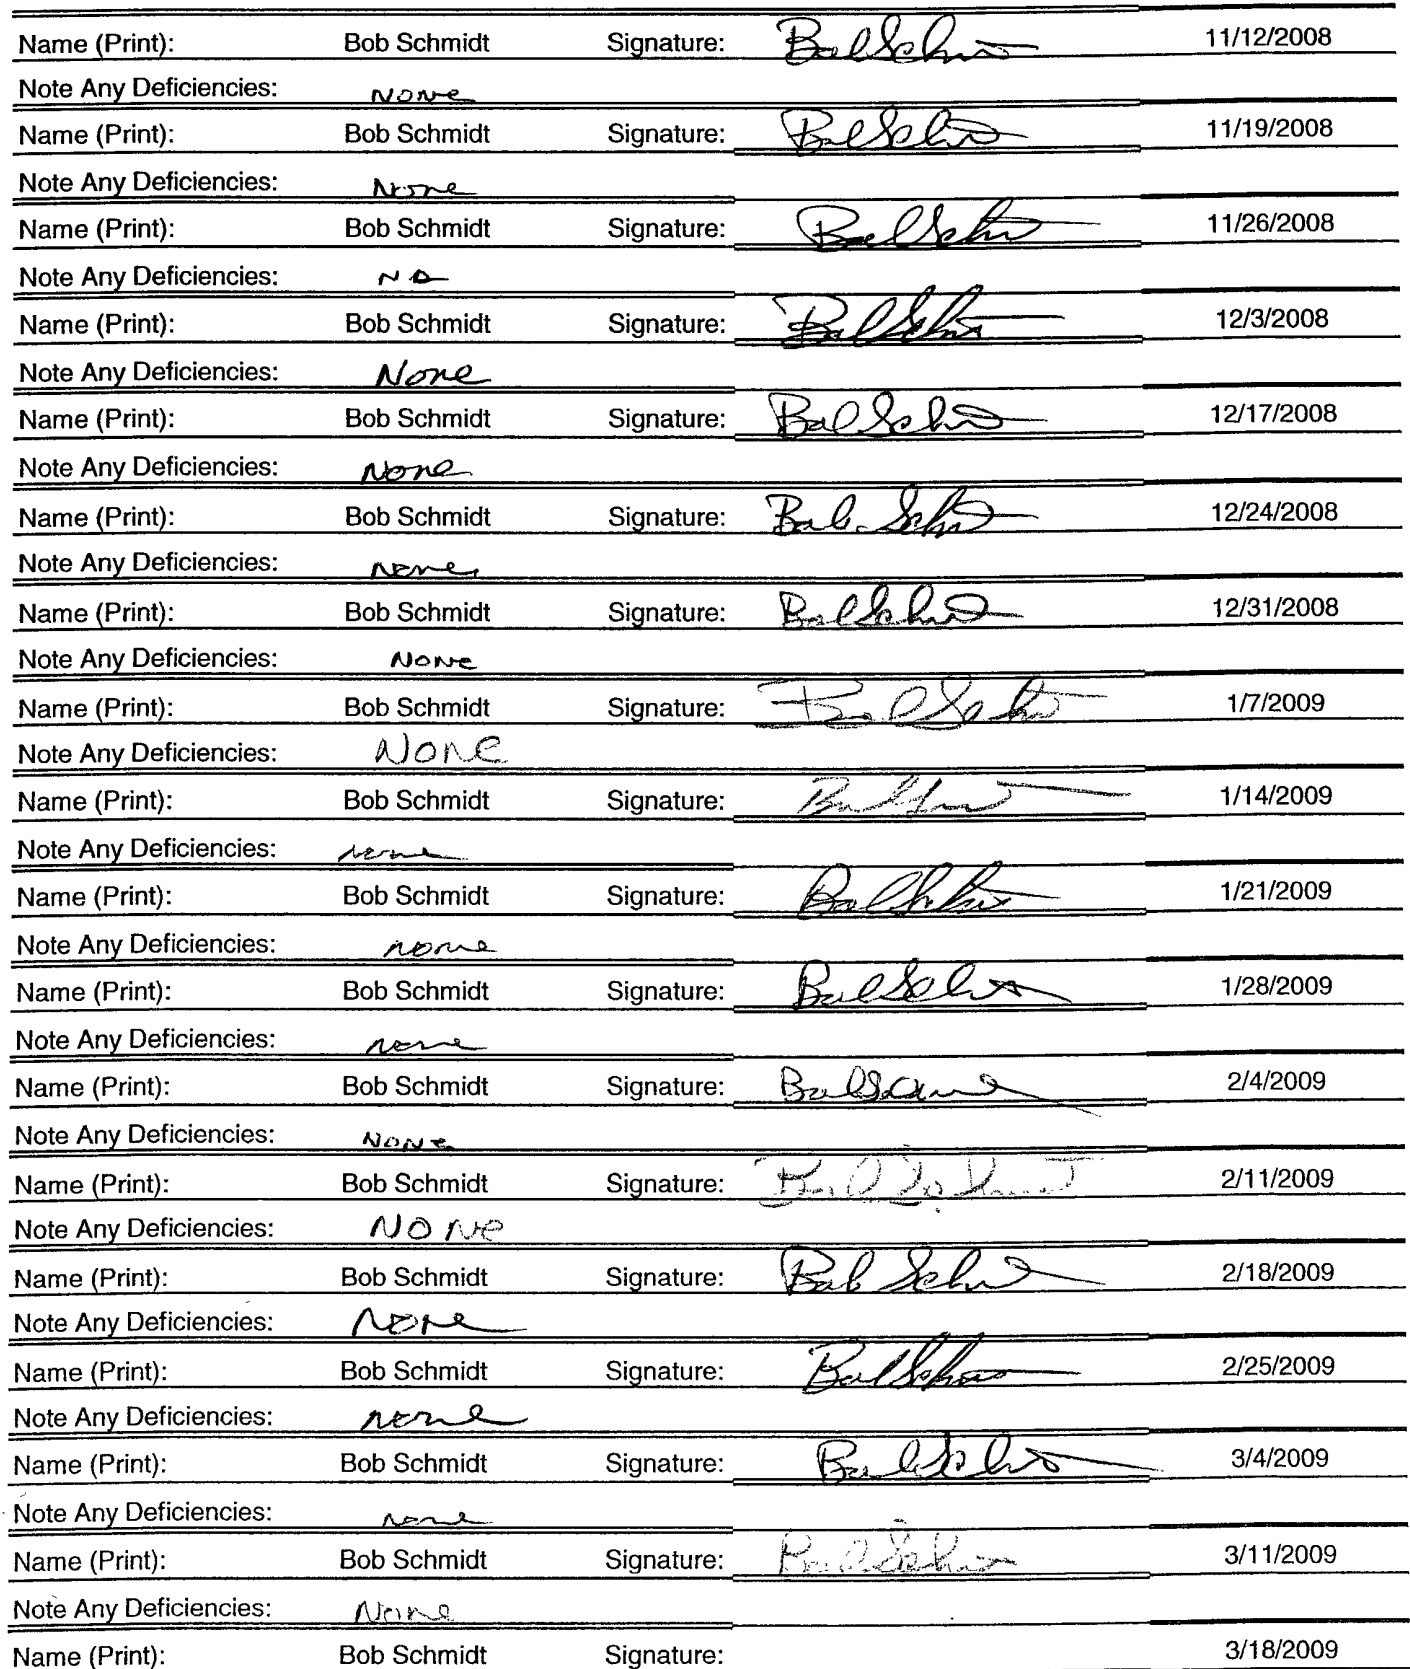 Name (Print): Bob Schmidt Signature: Bob Schmidt 11/12/2008
Note Any Deficiencies: None
Name (Print): Bob Schmidt Signature: Bob Schmidt 11/19/2008
Note Any Deficiencies: None
Name (Print): Bob Schmidt Signature: Bob Schmidt 11/26/2008
Note Any Deficiencies: No
Name (Print): Bob Schmidt Signature: Bob Schmidt 12/3/2008
Note Any Deficiencies: None
Name (Print): Bob Schmidt Signature: Bob Schmidt 12/17/2008
Note Any Deficiencies: None
Name (Print): Bob Schmidt Signature: Bob Schmidt 12/24/2008
Note Any Deficiencies: None
Name (Print): Bob Schmidt Signature: Bob Schmidt 12/31/2008
Note Any Deficiencies: None
Name (Print): Bob Schmidt Signature: Bob Schmidt 1/7/2009
Note Any Deficiencies: None
Name (Print): Bob Schmidt Signature: Bob Schmidt 1/14/2009
Note Any Deficiencies: none
Name (Print): Bob Schmidt Signature: Bob Schmidt 1/21/2009
Note Any Deficiencies: none
Name (Print): Bob Schmidt Signature: Bob Schmidt 1/28/2009
Note Any Deficiencies: none
Name (Print): Bob Schmidt Signature: Bob Schmidt 2/4/2009
Note Any Deficiencies: None
Name (Print): Bob Schmidt Signature: Bob Schmidt 2/11/2009
Note Any Deficiencies: None
Name (Print): Bob Schmidt Signature: Bob Schmidt 2/18/2009
Note Any Deficiencies: None
Name (Print): Bob Schmidt Signature: Bob Schmidt 2/25/2009
Note Any Deficiencies: none
Name (Print): Bob Schmidt Signature: Bob Schmidt 3/4/2009
Note Any Deficiencies: none
Name (Print): Bob Schmidt Signature: Bob Schmidt 3/11/2009
Note Any Deficiencies: None
Name (Print): Bob Schmidt Signature: 3/18/2009